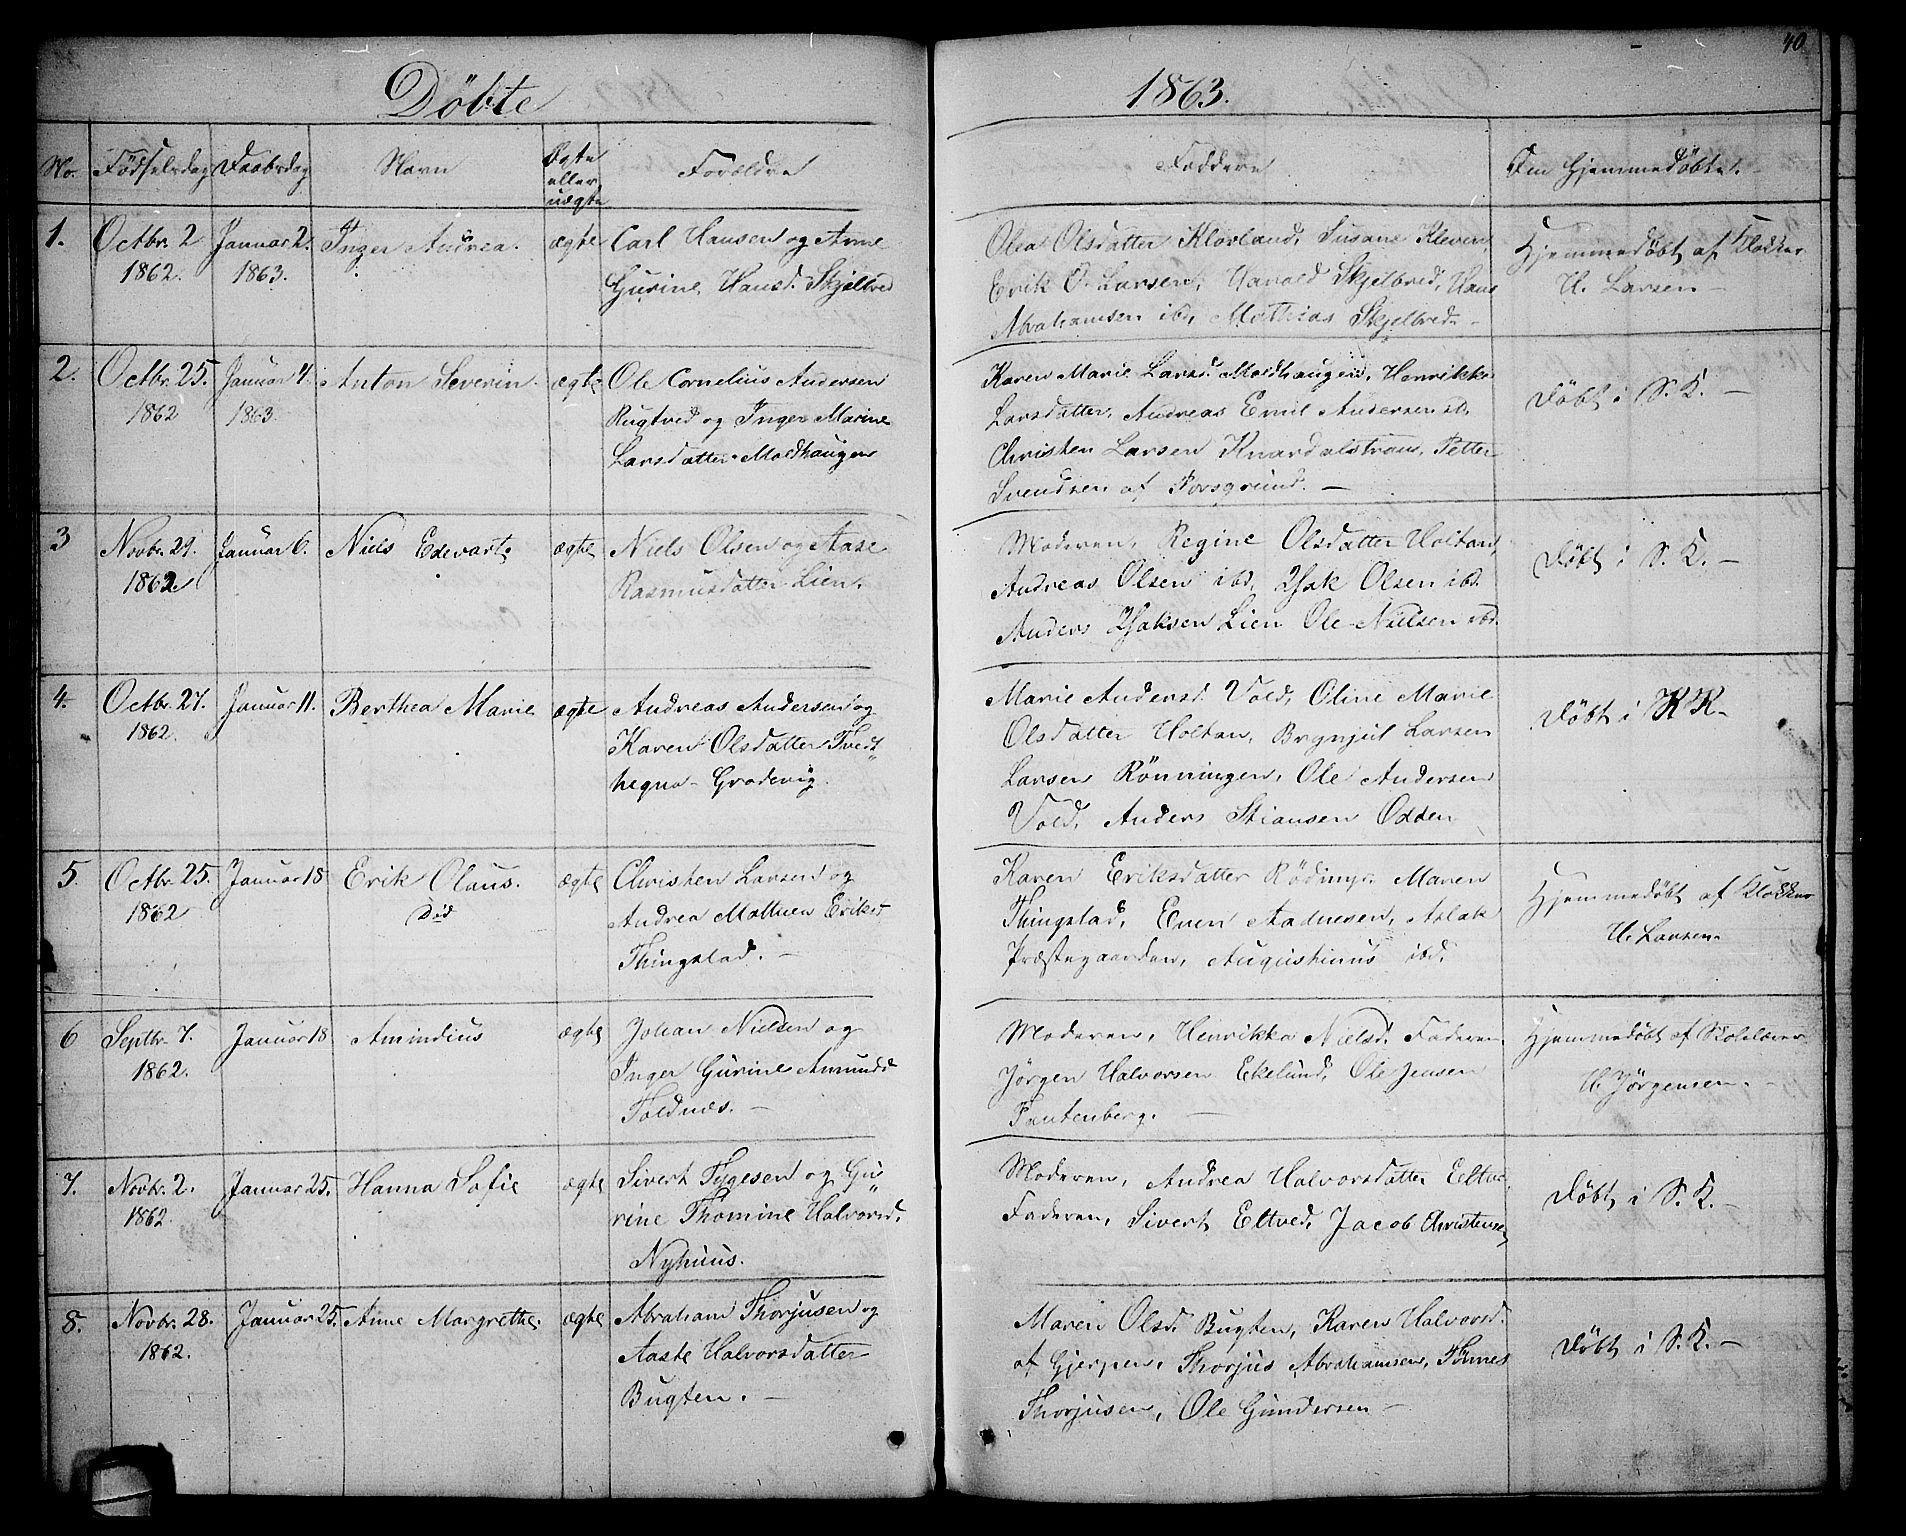 40
Döbte 1863.
No. Födselsdag Daabsdag Navn Ægte eller uægte Foreldre Faddere Om Hjemmedöbt.
1. Octbr. 2 1862. Januar 2. 1863. Inger Andrea. ægte
Carl Hansen og Anne
Gurine Hansd. Skjelbred
Olea Olsdatter Klovland, Susane Kleven,
Erik O. Larsen, Harald Skjelbred, Hans
Abrahamsen ibd, Mathias Skjelbred. -
Hjemmedöbt af Klokker
H. Larsen -
2. Octbr. 25. 1862 Januar 4. 1863. Anton Severin. ægte
Ole Cornelius Andersen
Rugtved og Inger Marine
Larsdatter Moldhaugen
Karen Marie Larsd. Moldhaugen, Henrikke
Larsdatter, Andreas Emil Andersen
Christen Larsen Knardalstran, Petter
Svendsen af Porsgrund. -
Döbt i S. K. -
3 Novbr. 29. 1862 Januar 6. Niels Edevart ægte
Niels Olsen og Aase
Rasmusdatter Lien.
Moderen, Regine Olsdatter Holtan,
Andreas Olsen ibd, Isak Olsen ibd.
Anders Isaksen Lien Ole Nielsen ibd.
Döbt i S. K. -
4. Octbr. 27. 1862. Januar 11. Berthea Marie ægte
Andreas Andersen og
Karen Olsdatter Tvedt„
hegna - Grodevig.
Marie Andersd. Vold, Oline Marie
Olsdatter Holtan, Brynjul Larsen
Larsen Rönningen, Ole Andersen
Vold, Anders Stiansen Odden
Döbt i K K -
5. Octbr. 25. 1862 Januar 18 Erik Olaus. Död ægte
Christen Larsen og
Andrea Mathea Eriksd.
Thingstad. -
Karen Eriksdatter Rödmyr. Maren
Thingstad, Even Aadnesen, Aslak
Præstegaarden, Augustinus ibd.
Hjemmedöbt af Klokker
H. Larsen.
6 Septbr. 7. 1862. Januar 18 Amindius ægte
Johan Nielsen og
Inger Gurine Amundsd
Foldnæs. -
Moderen, Henrikka Nielsd. Faderen
Jörgen Halvorsen Ekelund, Ole Jensen
Fantenberg. -
Hjemmedöbt af Skolelærer
H. Jörgensen. -
7. Novbr. 2. 1862. Januar 25. Hanna Sofie ægte
Sivert Tygesen og Gu„
rine Thomine Halvorsd.
Nyhuus.
Moderen, Andrea Halvorsdatter Eltve.
Faderen, Sivert Eltved, Jacob Christensen
Döbt i S. K. -
8. Novbr. 28. 1862. Januar 25. Anne Margrethe. ægte
Abraham Thorjusen og
Aaste Halvorsdatter
Bugten. -
Maren Olsd. Bugten, Karen Halvorsd.
af Gjerpen, Thorjus Abrahamsen, Tönnes
Thorjusen, Ole Gundersen -
Döbt i S. K. -